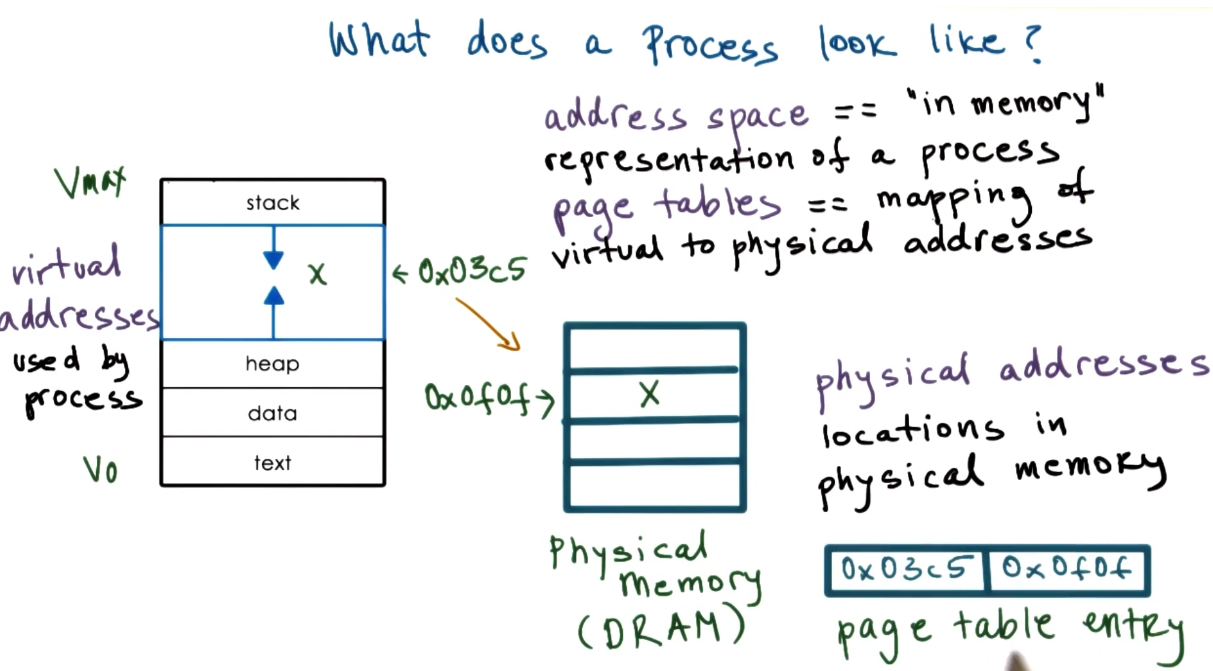 What does a Process look like?
address space == "in memory"
representation of a process
page tables == mapping of
virtual to physical addresses
Vmax
virtual
addresses
used by
process
V0
stack
X
heap
data
text
← 0x03c5
0x0f0f →
X
Physical
memory
(DRAM)
physical addresses
locations in
physical memory
0x03c5 0x0f0f
page table entry